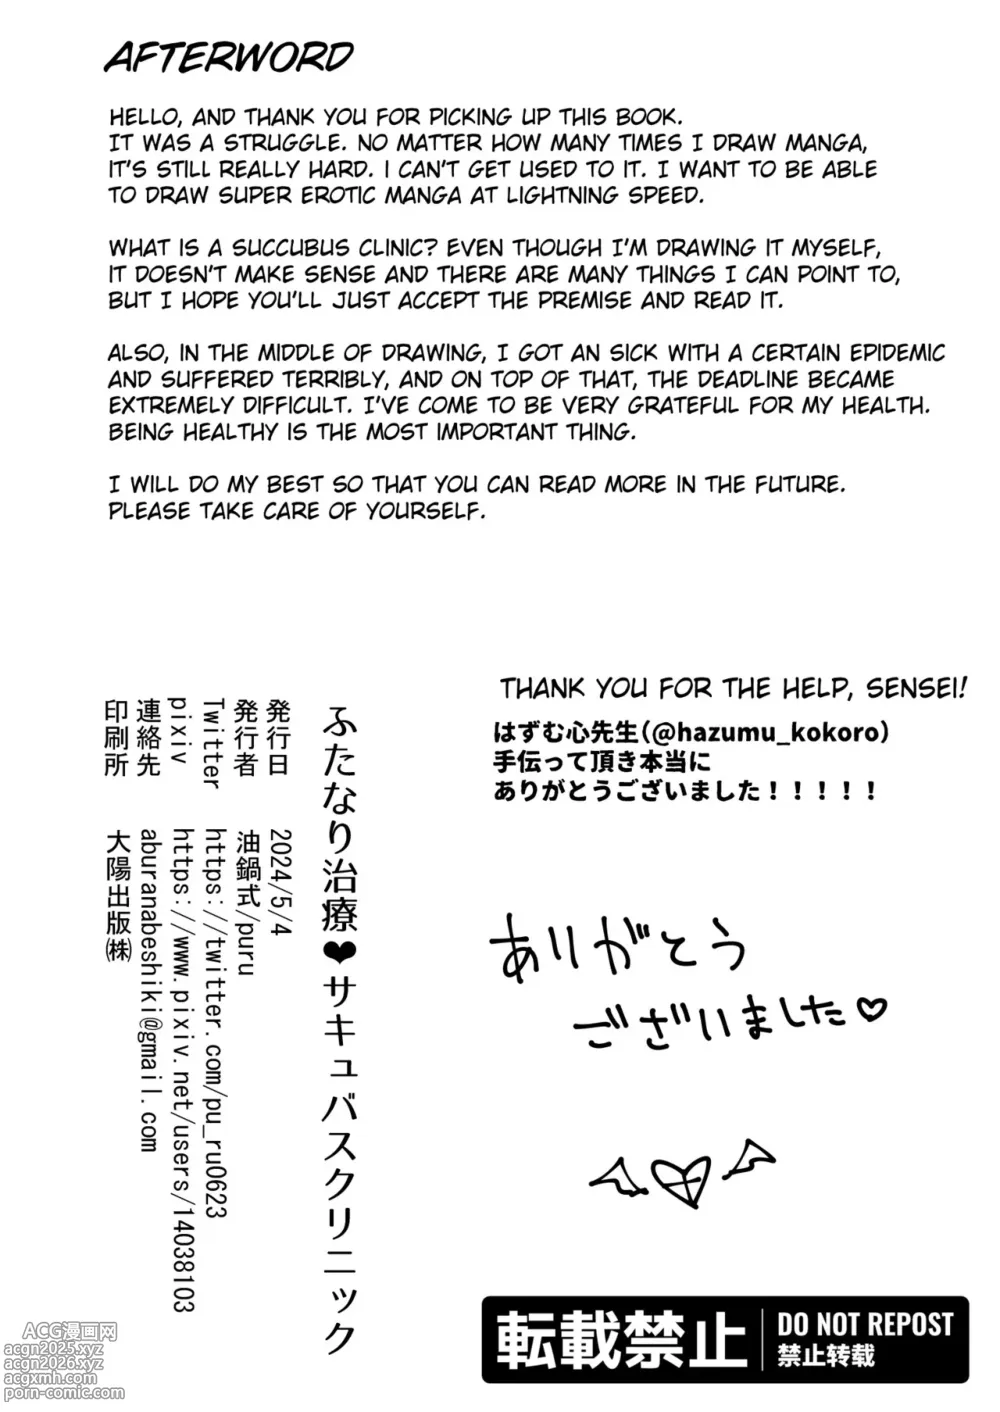 AFTERWORD
HELLO, AND THANK YOU FOR PICKING UP THIS BOOK.
IT WAS A STRUGGLE. NO MATTER HOW MANY TIMES I DRAW MANGA,
IT'S STILL REALLY HARD. I CAN'T GET USED TO IT. I WANT TO BE ABLE
TO DRAW SUPER EROTIC MANGA AT LIGHTNING SPEED.
WHAT IS A SUCCUBUS CLINIC? EVEN THOUGH I'M DRAWING IT MYSELF,
IT DOESN'T MAKE SENSE AND THERE ARE MANY THINGS I CAN POINT TO,
BUT I HOPE YOU'LL JUST ACCEPT THE PREMISE AND READ IT.
ALSO, IN THE MIDDLE OF DRAWING, I GOT AN SICK WITH A CERTAIN EPIDEMIC
AND SUFFERED TERRIBLY, AND ON TOP OF THAT, THE DEADLINE BECAME
EXTREMELY DIFFICULT. I'VE COME TO BE VERY GRATEFUL FOR MY HEALTH.
BEING HEALTHY IS THE MOST IMPORTANT THING.
I WILL DO MY BEST SO THAT YOU CAN READ MORE IN THE FUTURE.
PLEASE TAKE CARE OF YOURSELF.
THANK YOU FOR THE HELP, SENSEI!
はずむ心先生(@hazumu_kokoro)
手伝って頂き本当に
ありがとうございました！！！！！
ありがとう
ございました♡
ふたなり治療❤サキュバスクリニック
発行日 2024/5/4
発行者 油鍋式/puru
Twitter https://twitter.com/pu_ru0623
pixiv https://www.pixiv.net/users/14038103
連絡先 aburanabeshiki@gmail.com
印刷所 大陽出版㈱
転載禁止
DO NOT REPOST
禁止转载
ACG漫画网
acgn2025.xyz
acgn2026.xyz
acgxmh.com
porn-comic.com